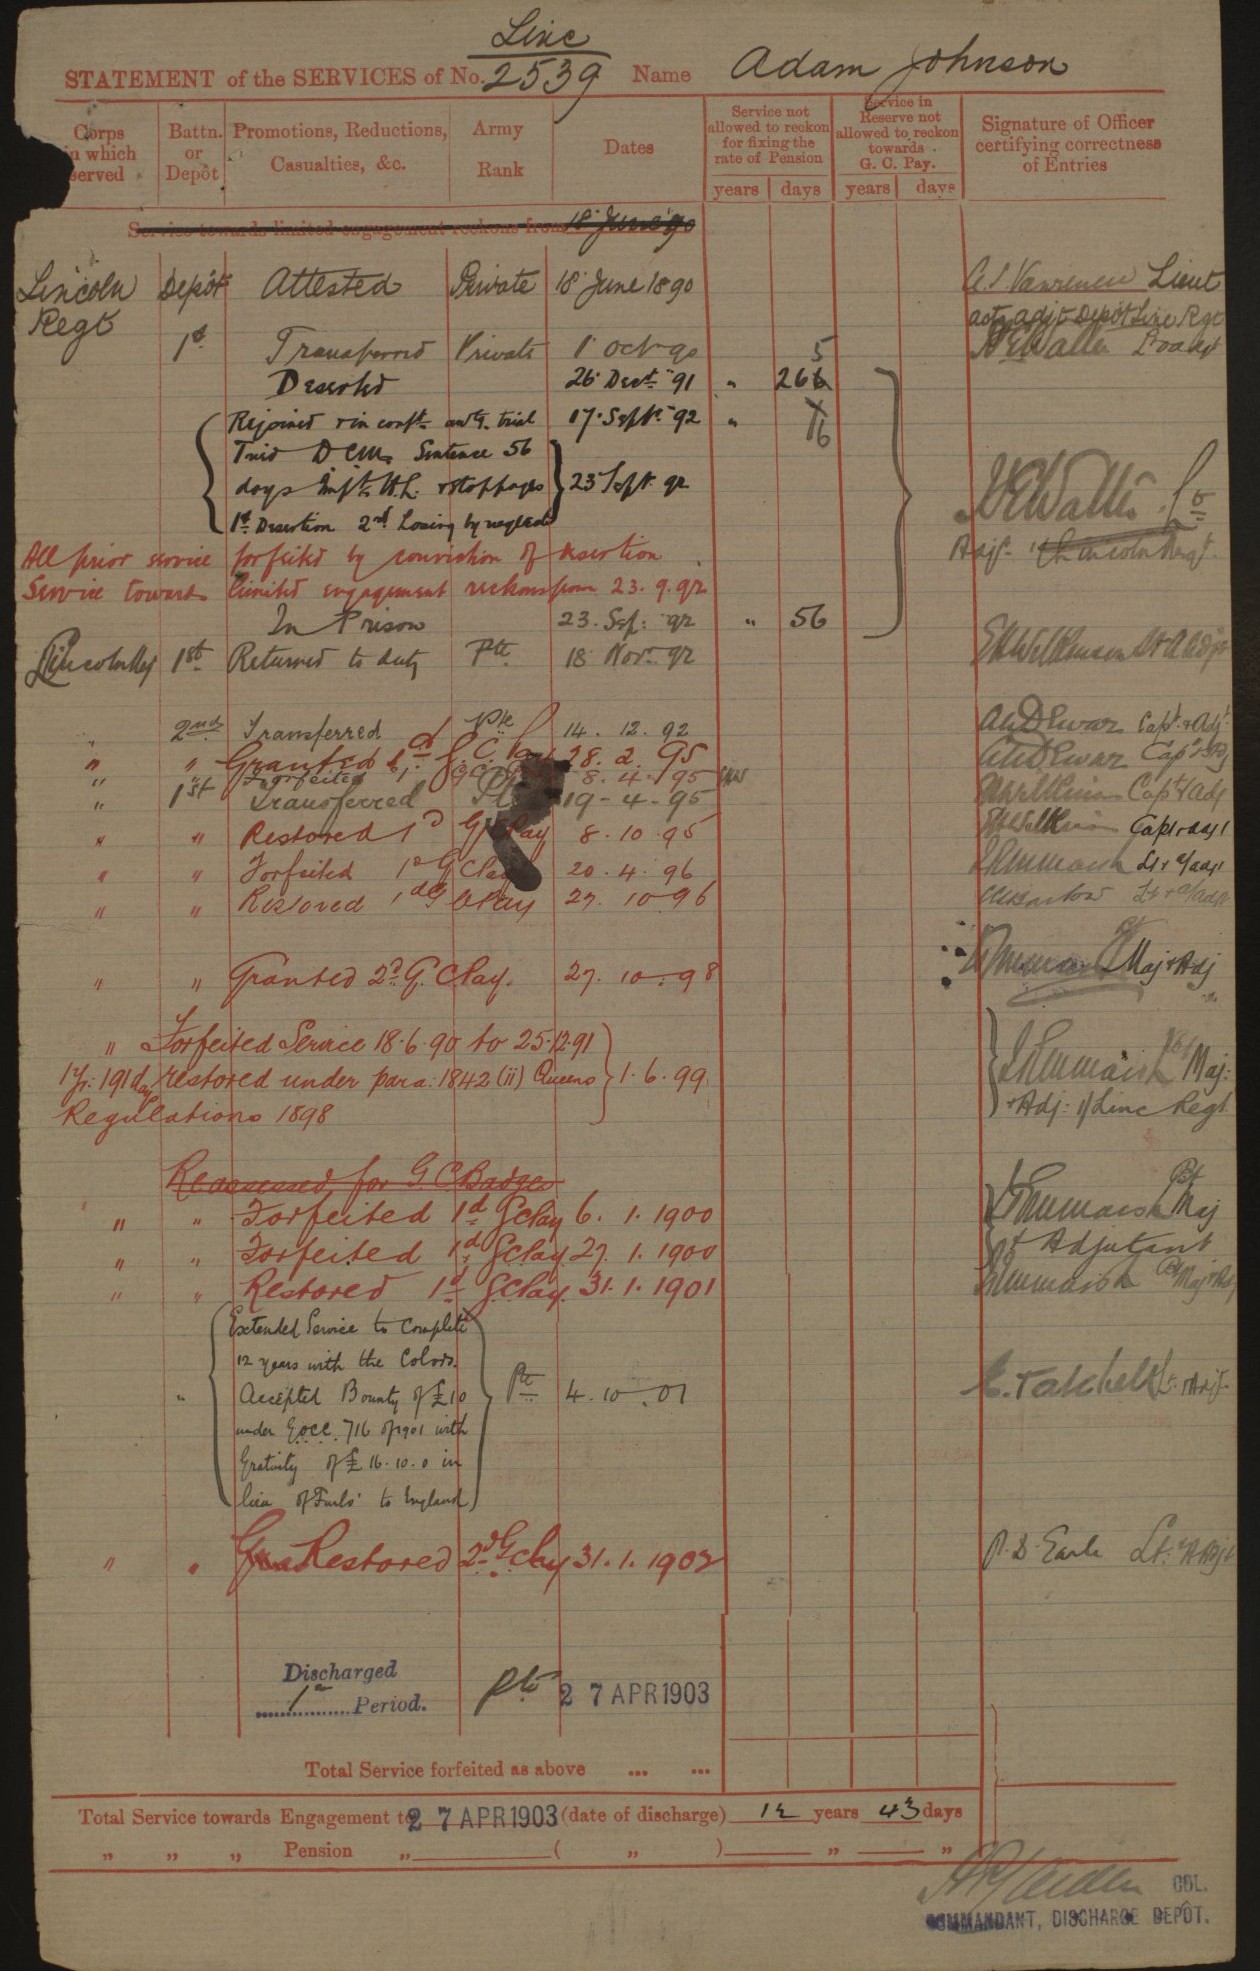 Linc
STATEMENT of the SERVICES of No. 2539 Name Adam Johnson
Corps in which served
Battn. or Depôt
Promotions, Reductions, Casualties, &c.
Army Rank
Dates
Service not allowed to reckon for fixing the rate of Pension
Service in Reserve not allowed to reckon towards G. C. Pay.
Signature of Officer certifying correctness of Entries
years days years days
Service towards limited engagement reckons from 18 June 90
Lincoln Depôt Attested Private 18 June 1890 Lieut
Regt actg adjt Depôt Linc Regt
1st Transferred Private 1 Oct 90
Deserted 26 Dect 91 " 265
Rejoined & in conft awtg. trial 17 Sept. 92 " 6
Tried DCM. Sentence 56
days Impt H.L. & stoppages 23 Sept. 92
1st Desertion 2nd Losing by neglect
All prior service forfeited by conviction of desertion
Service towards limited engagement reckons from 23.9.92
In Prison 23. Sep: 92 " 56
Lincoln Reg 1st Returned to duty Pte 18 Nov. 92
" 2nd Transferred Pte 14. 12. 92 Capt. & Adjt.
" " Granted 1d G.C. Pay 28. 2. 95
" " Forfeited 1d 8. 4. 95
" 1st Transferred 19 - 4 - 95 Capt & Adj
" " Restored 1d G Pay 8. 10. 95 Capt & adjt
" " Forfeited 1d G C Pay 20. 4. 96 Lt & a/adjt
" " Restored 1d G C Pay 27. 10 96
" " Granted 2d G. C Pay. 27. 10. 98 Maj & Adj
" Forfeited Service 18.6.90 to 25.12.91
1 yr: 191 days restored under para: 1842 (ii) Queens 1. 6. 99. Maj:
Regulations 1898 & Adj: 1/Linc Regt
Reassessed for G. C Badges
" " Forfeited 1d G C Pay 6. 1. 1900 Bt Maj
" " Forfeited 1d G C Pay 27. 1. 1900 & Adjutant
" " Restored 1d G C Pay. 31. 1. 1901
Extended Service to Complete
12 years with the Colors.
" Accepted Bounty of £10 Pte 4. 10. 01
under 716 of 1901 with
Gratuity of £16.10.0 in
lieu of Furlo' to England
" " Restored 2d G C Pay 31. 1. 1902 Earle Lt.
Discharged
1st Period. Pte 27 APR 1903
Total Service forfeited as above ... ...
Total Service towards Engagement to 27 APR 1903 (date of discharge) 12 years 43 days
" " " Pension " ( " ) " "
COL.
COMMANDANT, DISCHARGE DEPÔT.